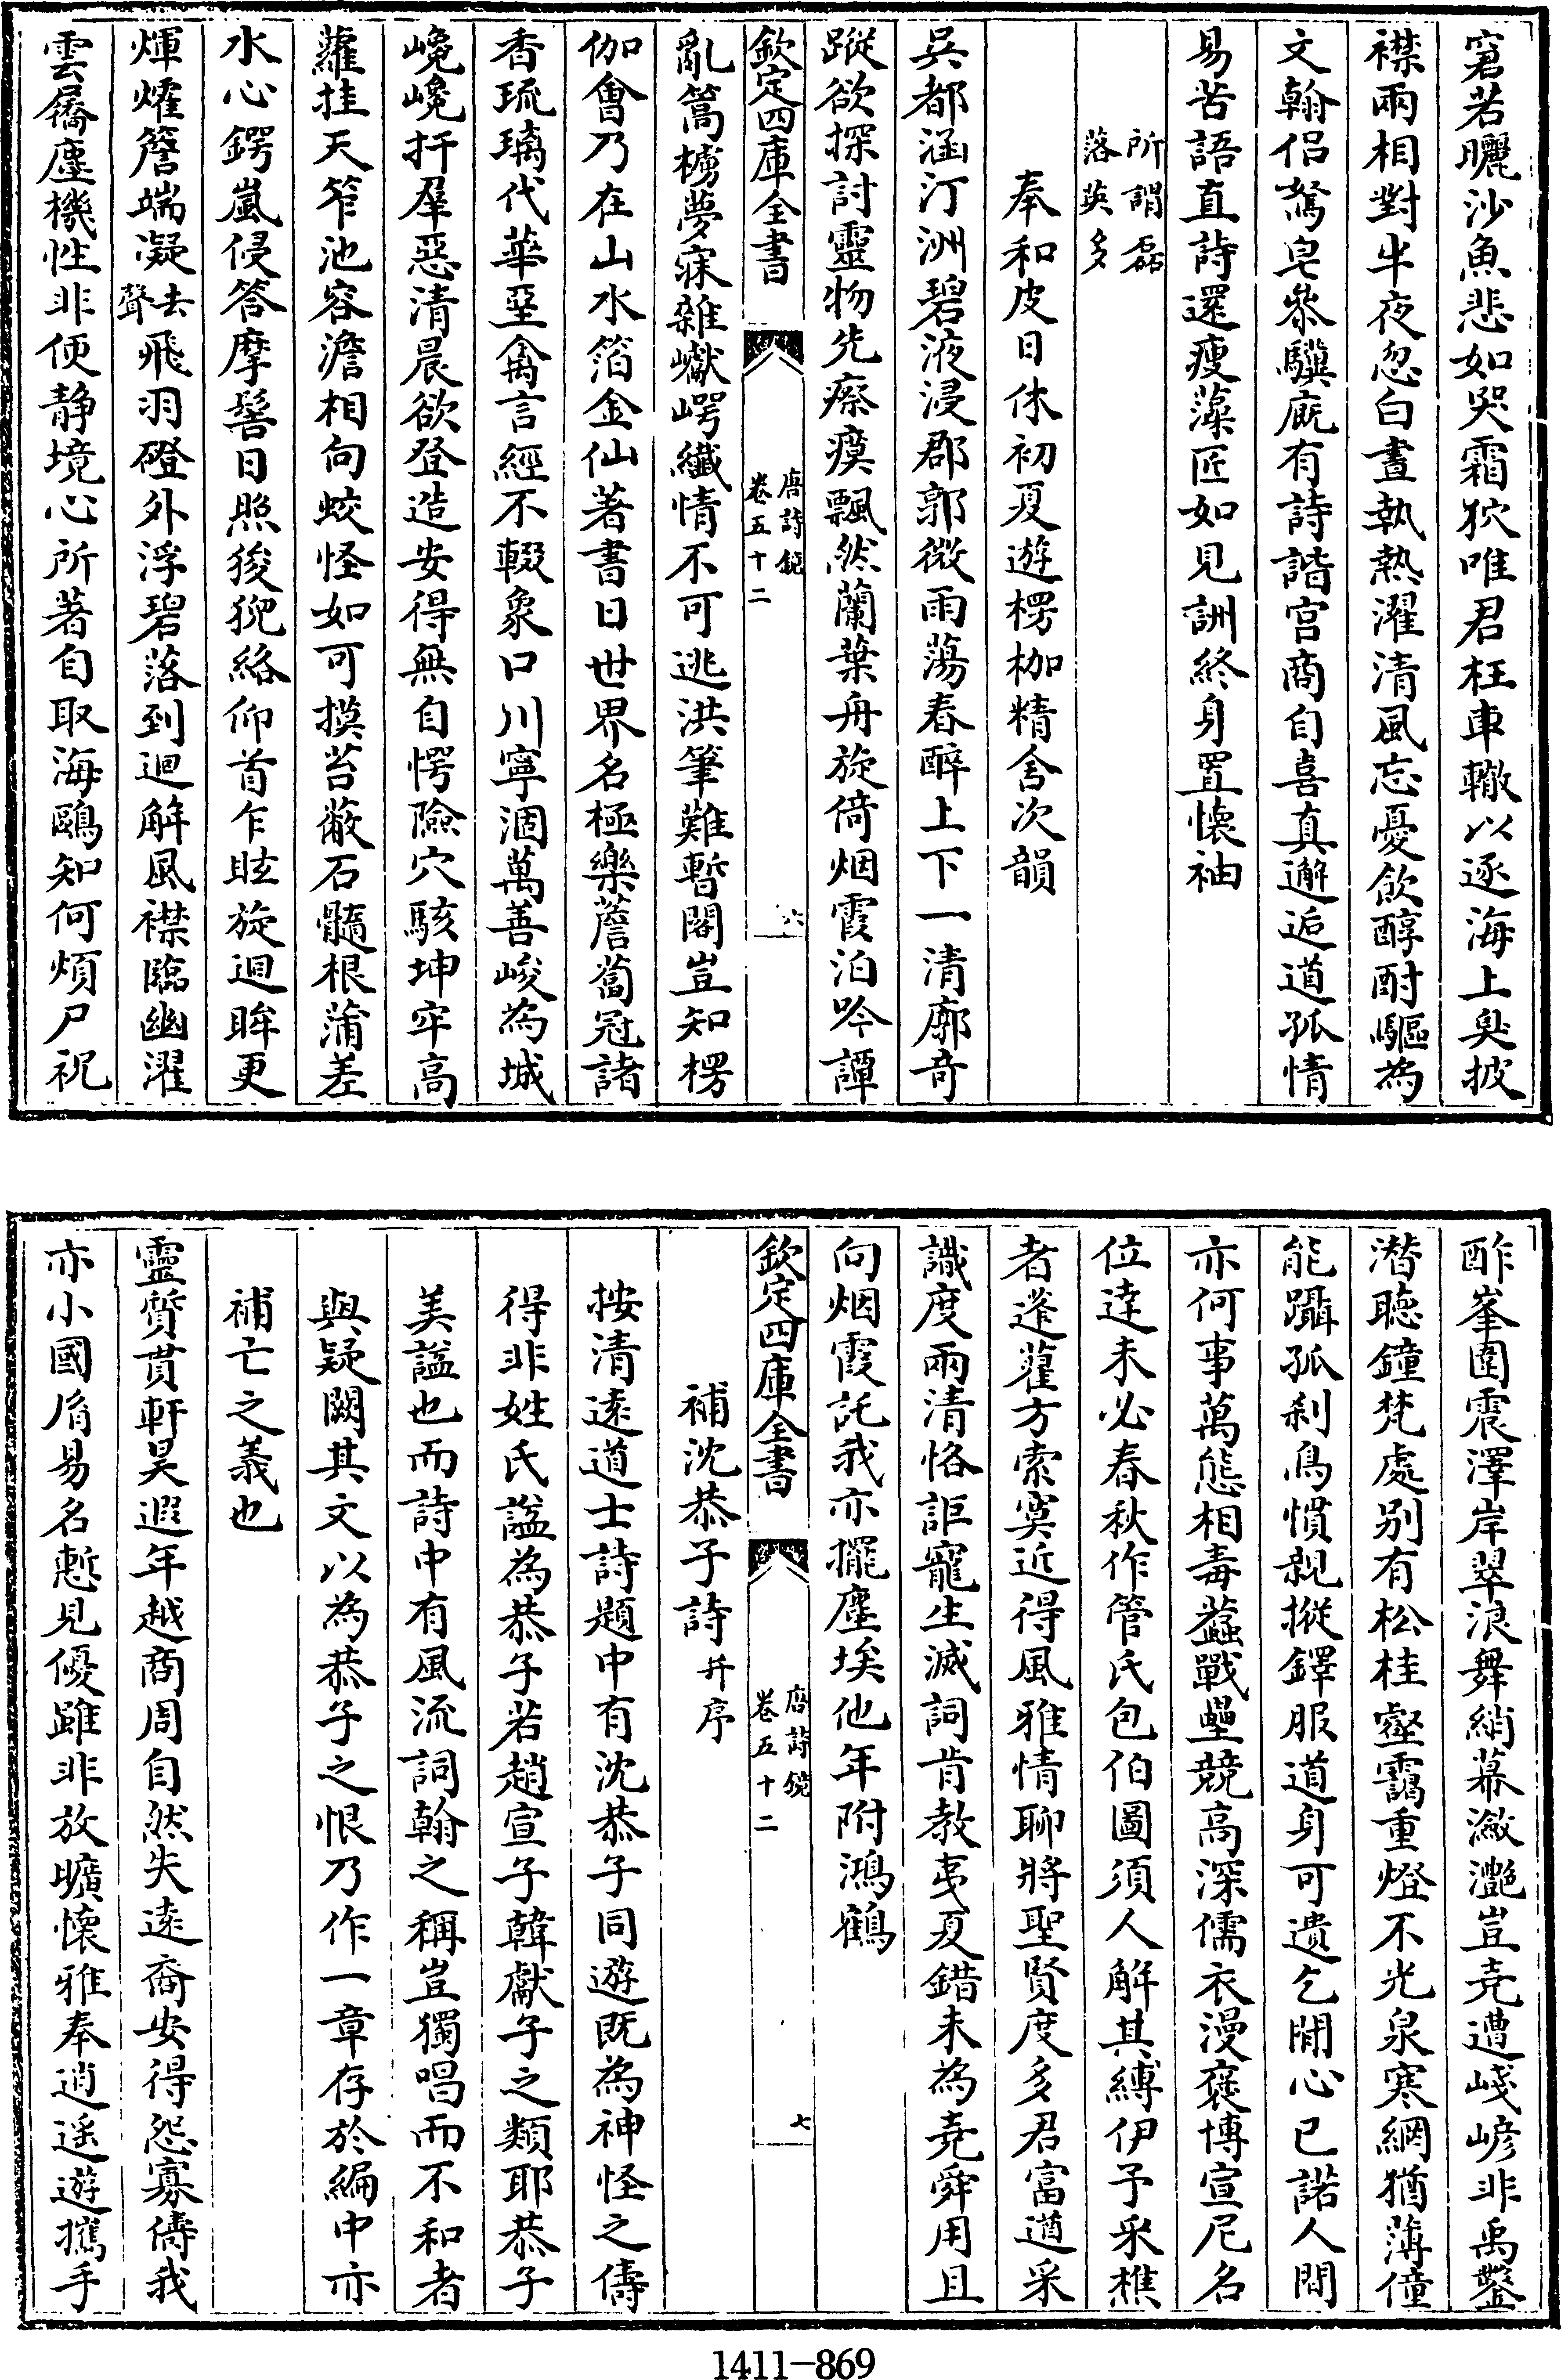 窘若曬沙魚悲如哭霜狖唯君枉車轍以逐海上臭披
襟兩相對半夜忽白晝執熱濯清風忘憂飲醇酎驅為
文翰侣駑皂參驥廐有詩諧宫商自喜真邂逅道孤情
易苦語直詩還瘦藻匠如見詶終身置懷袖
所謂磊落英多
奉和皮日休初夏遊楞枷精舍次韻
吳都涵汀洲碧液浸郡郭微雨蕩春醉上下一清廓竒
蹤欲探討靈物先瘵瘼飄然蘭葉舟旋倚烟霞泊吟譚
欽定四庫全書
唐詩鏡
卷五十二
六
亂篙榜夢寐雜巘崿纖情不可逃洪筆難暫閣豈知楞
伽會乃在山水箔金仙著書日世界名極樂薝蔔冠諸
香琉璃代華堊禽言經不輟象口川寧涸萬善峻為城
巉巉扞羣惡清晨欲登造安得無自愕險穴駭坤牢高
蘿挂天笮池容澹相向蛟怪如可摸苔蔽石髓根蒲差
水心鍔嵐侵答摩髻日照狻猊絡仰首乍眩旋迴眸更
煇㸌簷端凝去聲飛羽磴外浮碧落到迴解風襟臨幽濯
雲屩塵機性非便静境心所著自取海鷗知何煩尸祝
酢峯圍震澤岸翠浪舞綃幕瀲灩豈堯遭嶘嵃非禹鑿
潛聽鐘梵處别有松桂壑靄重燈不光泉寒網猶薄僮
能躡孤刹鳥慣親摐鐸服道身可遺乞閒心已諾人間
亦何事萬態相毒蠚戰壘競高深儒衣漫褒博宣尼名
位達未必春秋作管氏包伯圖須人解其縛伊予采樵
者蓬藋方索寞近得風雅情聊將聖賢度多君富遒采
識度兩清恪詎寵生滅詞肯教夷夏錯未為堯舜用且
向烟霞託我亦擺塵埃他年附鴻鶴
欽定四庫全書
唐詩鏡
卷五十二
七
補沈恭子詩并序
按清遠道士詩題中有沈恭子同遊既為神怪之儔
得非姓氏諡為恭子若趙宣子韓獻子之類耶恭子
美諡也而詩中有風流詞翰之稱豈獨唱而不和者
與疑闕其文以為恭子之恨乃作一章存於編中亦
補亡之義也
靈質貫軒昊遐年越商周自然失遠裔安得怨寡儔我
亦小國𦙍易名慙見優雖非放曠懷雅奉逍遥遊攜手
1411-869